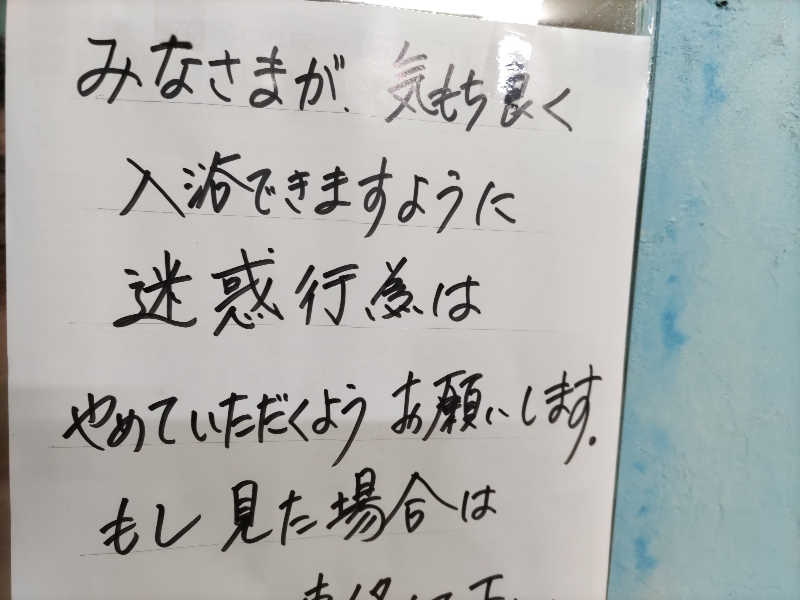 みなさまが、気もち良く
入浴できますように
迷惑行為は
やめていただくようお願いします。
もし見た場合は